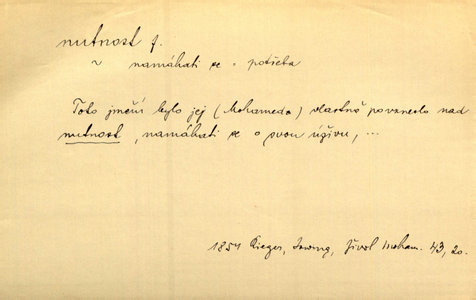 nutnost f.
~ namáhati se . potřeba
Toto jmění bylo jej (Mohameda) vlastně povzneslo nad
nutnost, namáhati se o svou úživu, ...
1854 Rieger, Irwing, Život Moham. 43, 20.